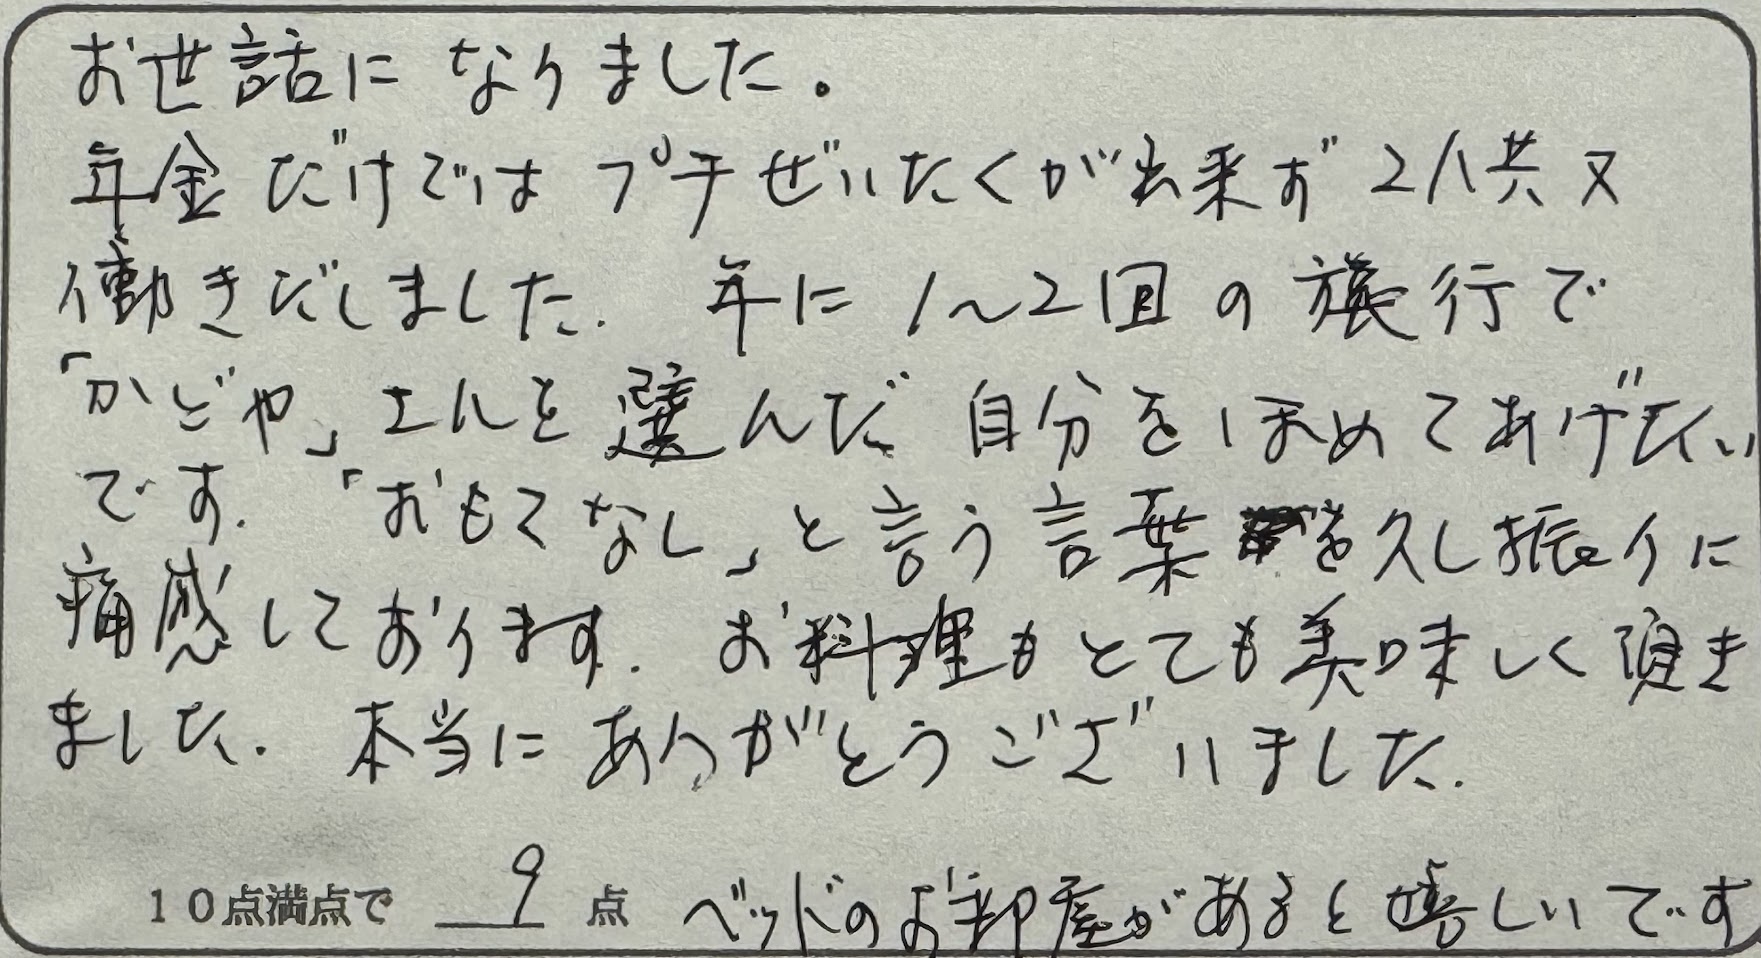 お世話になりました。
年金だけではプチぜいたくが出来ず2人共又
働きだしました. 年に1〜2回の旅行で
「かごや」さんを選んだ自分をほめてあげたい
です.「おもてなし」と言う言葉を久し振りに
痛感しております. お料理もとても美味しく頂き
ました. 本当にありがとうございました.
10点満点で 9 点 ベッドのお部屋があると嬉しいです